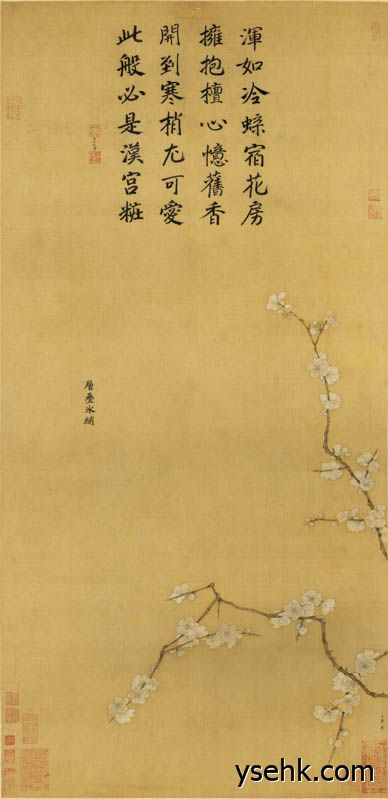 渾如冷蝶宿花房
擁抱檀心憶舊香
開到寒梢尤可愛
此般必是漢宮粧
層疊冰綃
ysehk.com